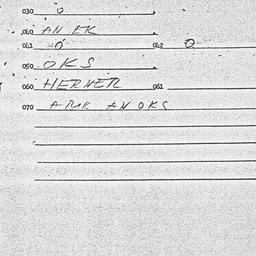 030 0
040 AN EK
041 0 042 0
050 OKS
060 HERNER 061
070 ARK AN OKS